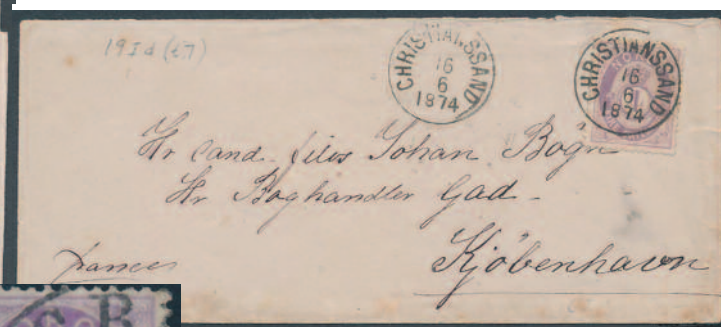 19Id (27)
CHRISTIANSSAND
16
6
1874
CHRISTIANSSAND
16
6
1874
Hr Cand. filos Johan Bøgh
Hr Boghandler Gad -
franco
Kjöbenhavn